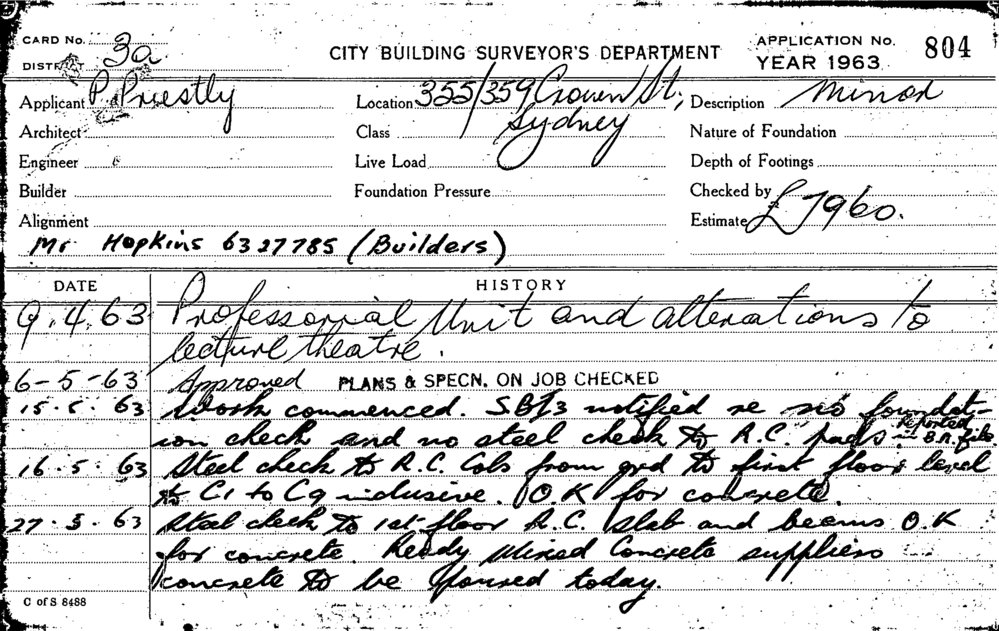 CARD No. 3a
DISTRICT
CITY BUILDING SURVEYOR'S DEPARTMENT
APPLICATION No. 804
YEAR 1963
Applicant P. Priestly
Location 355/359 Crown St, Sydney
Description Minor
Architect
Class
Nature of Foundation
Engineer
Live Load
Depth of Footings
Builder
Foundation Pressure
Checked by
Alignment
Estimate £7960.
Mr Hopkins 6327785 (Builders)
DATE HISTORY
9.4.63 Professorial Unit and alterations to
lecture theatre.
6-5-63 Approved PLANS & SPECN. ON JOB CHECKED
15.5.63 Work commenced. SB/3 notified re no foundat-
ion check and no steel check to R.C. pads Reported in B.A. file
16.5.63 Steel check to R.C. Cols from grd to first floor level
C1 to C9 inclusive. O.K for concrete.
27.5.63 Steel check to 1st floor R.C. slab and beams O.K
for concrete. Ready Mixed Concrete suppliers
concrete to be poured today.
C of S 8488